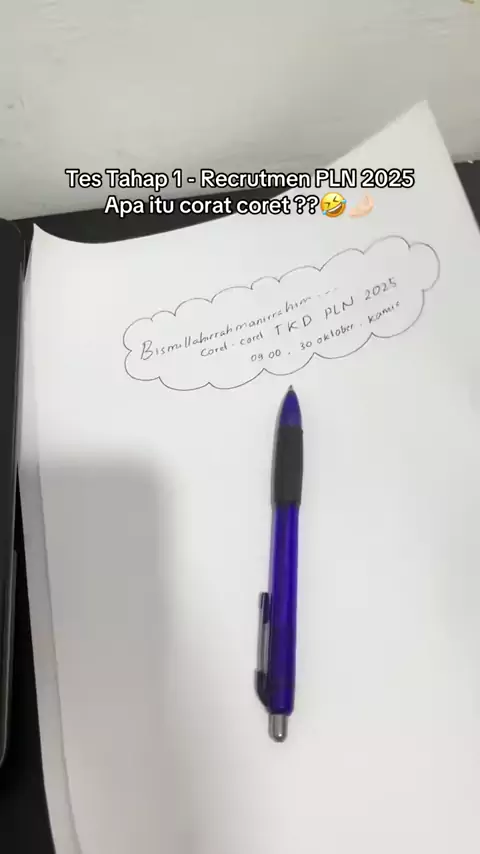 Tes Tahap 1 - Recrutmen PLN 2025
Apa itu corat coret ??🤣🤌🏻
Bismillahirrahmanirrahim...
Coret-coret TKD PLN 2025
09.00, 30 oktober. Kamis